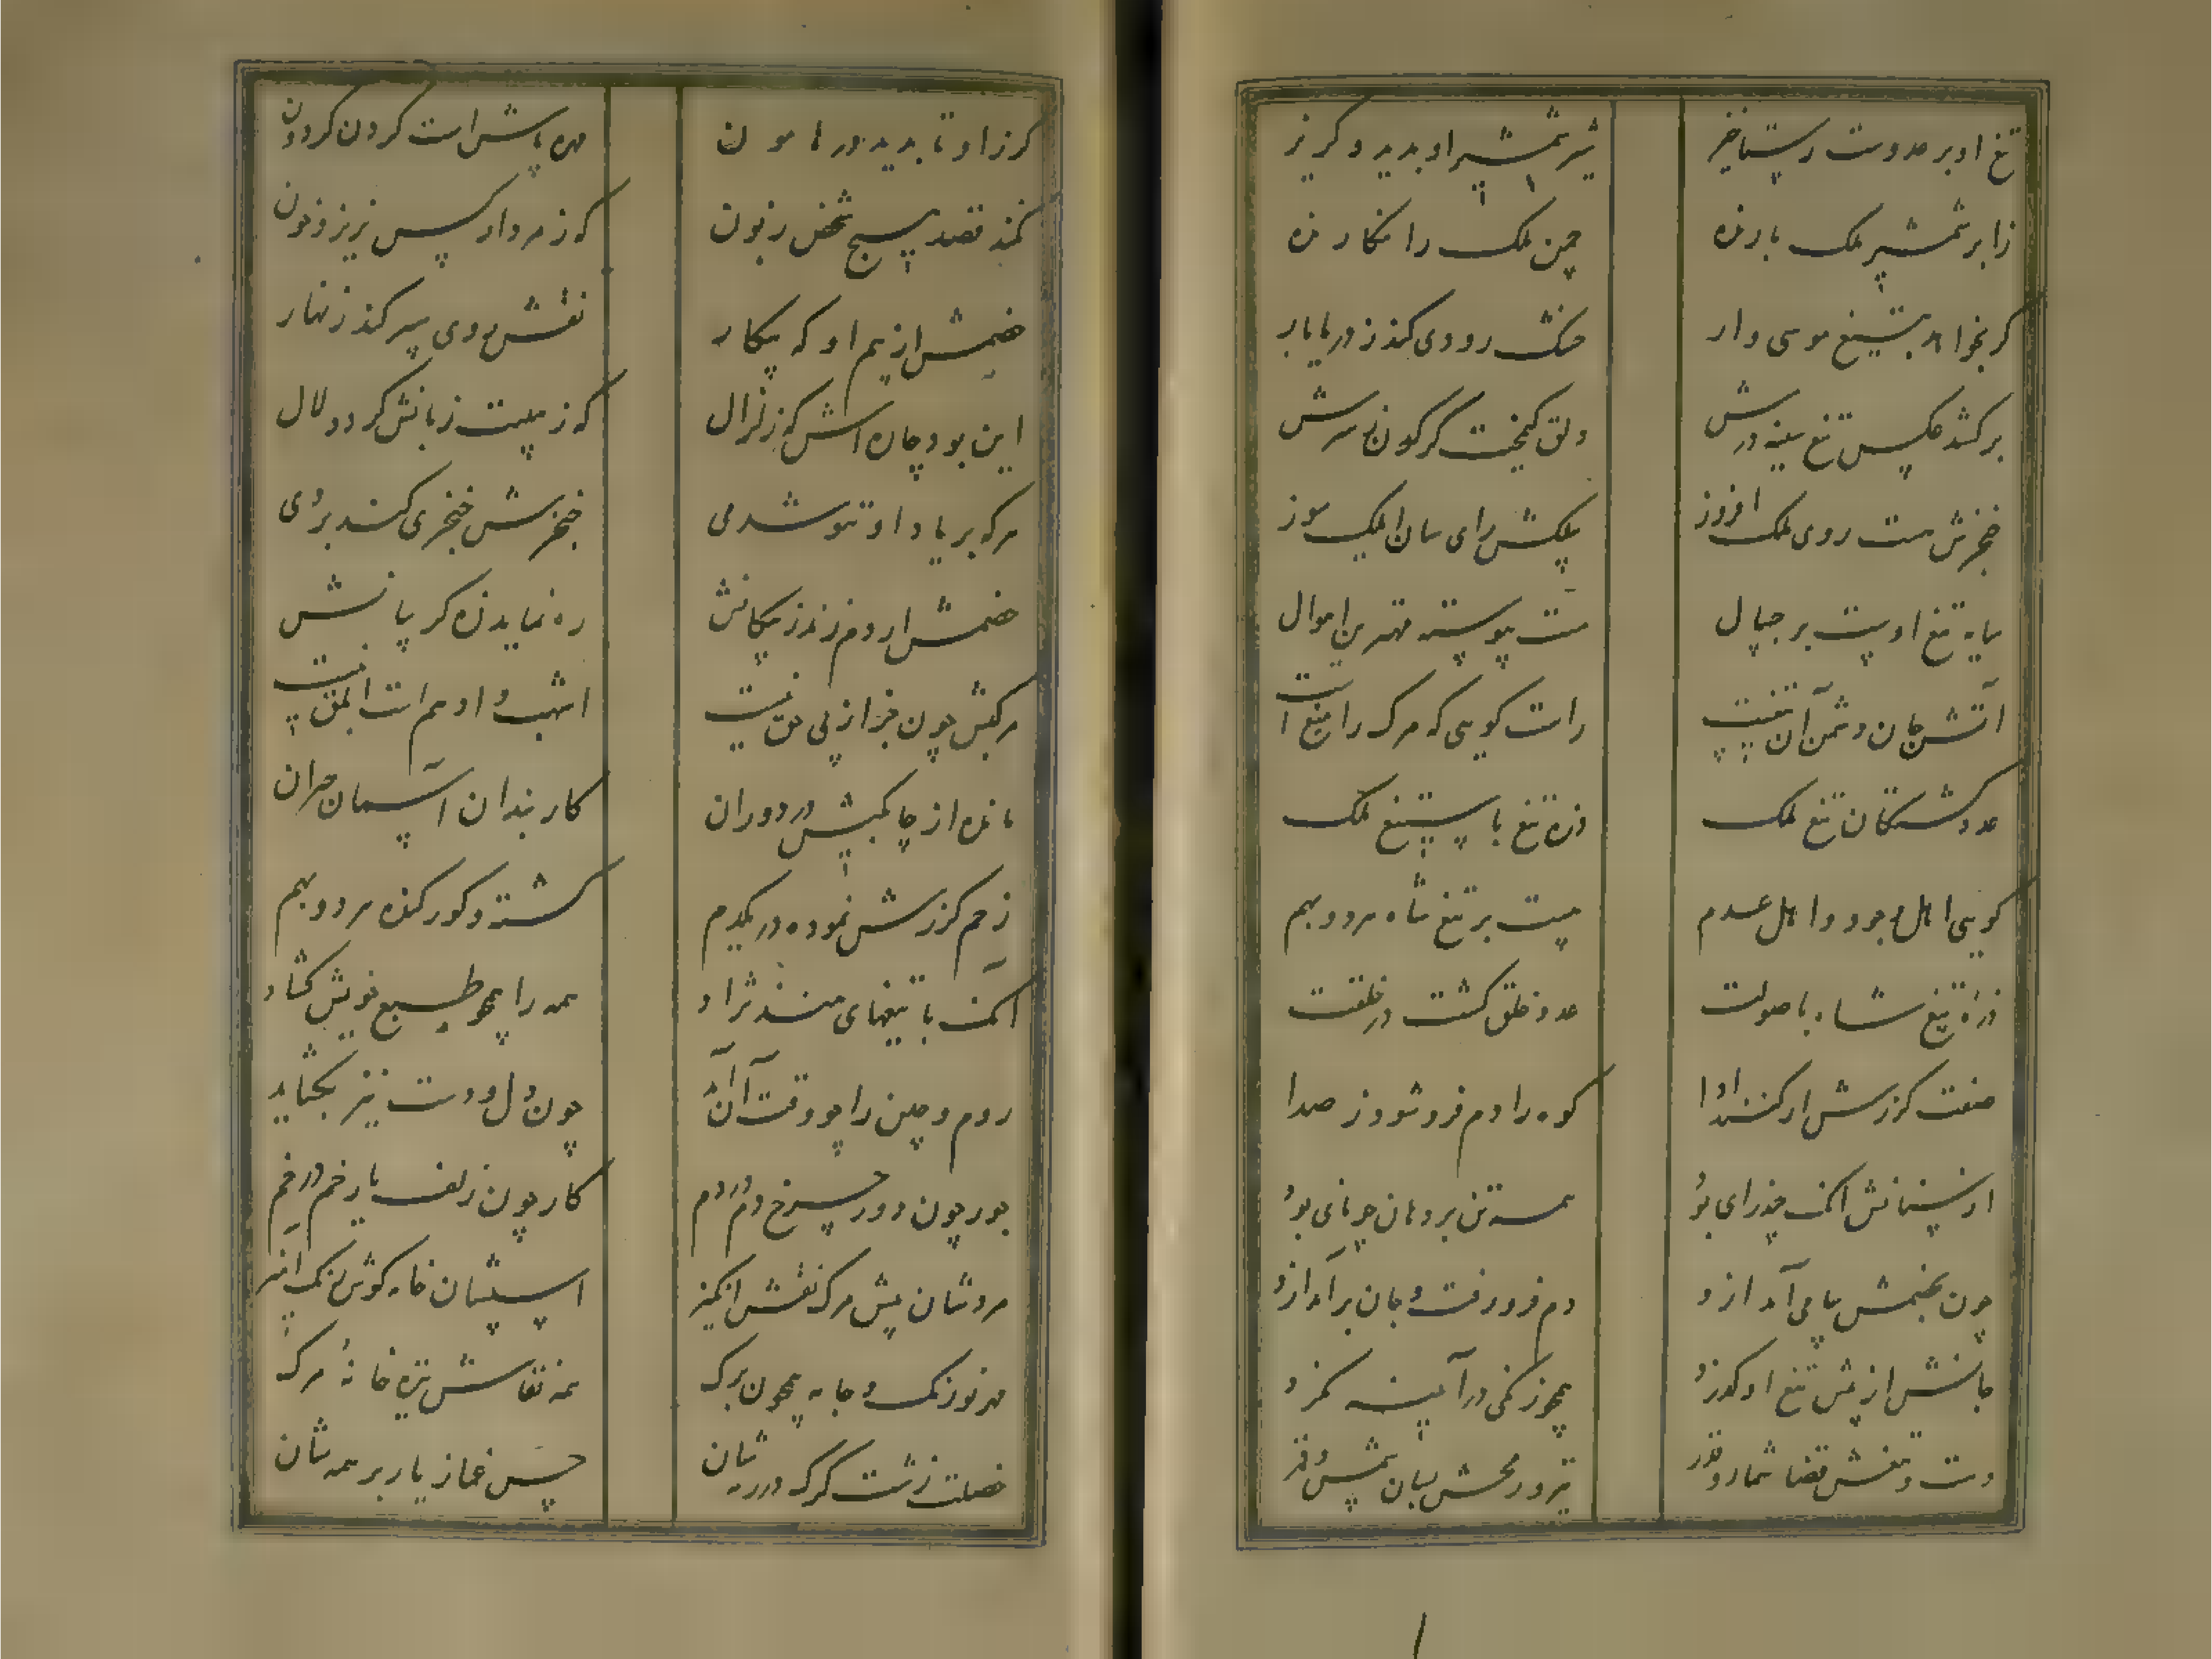 تیغ او بر عدوست رستاخیز
شیر شمشیر او بدید و گریز
زابر شمشیر ملک بارنده
چمن ملک را نگارنده
گر بخواهد بتیغ موسی وار
خشک رودی کند ز دریابار
برکشد عکس تیغ سینه درش
دلق کیمخت کرگدن ز سرش
خنجرش هست روی ملک افروز
پیلکش رای سان ملک سوز
سایه تیغ او بست بر جیپال
هست پیوسته قهرمن اموال
آتش جان دشمن آن تیغست
راست گویی که مرگ را میغ است
عدو کشتگان تیغ ملک
ذره تیغ با تیغ ملک
گویی اهل وجود و اهل عدم
هست بر تیغ شاه هر دو بهم
ذره تیغ شاه با صولت
عدد خلق گشت در خلقت
صفت گرزش ار کنند ادا
کوه را دم فرو شود ز صدا
از سنانش آنک چند رای بود
همه تن بر دهان چو نای بود
چون بخصمش پیامی آمد ازو
دم فرو رفت و جان برآمد ازو
جانش از پیش تیغ او گذرد
همچو زنگی در آینه نگرد
دست و تیغش قضا شمار و قدر
تیر و رمحش بسان شمس و قمر
گرز او تا بدید در هامون
مهره پاش است گردن گردون
نکند قصد هیچ شخص زبون
که ز مرد او سپس نریزد خون
خصمش از بیم او گه پیکار
نقش روی سپر کند زنهار
این بود چاره اش گه زلزال
که ز هیبت زبانش گردد لال
هرکه بر یاد او ننوشد می
خنجرش خنجری کند بر وی
خصمش ار دم زند ز پیکانش
ره نماید زه گریبانش
مرکبش چون جز از پی حق نیست
اشهب و ادهم است ابلق نیست
مانده از چابکیش در دوران
کاربندان آسمان حیران
زخم گرزش نموده در یکدم
کشته و گور کنده هر دو بهم
آنک با تیغهای هند نژاد
همه را همچو طبع خویش گشاد
روم و چین را چو وقت آن آید
چون دل و دست نیز بگشاید
جور چون دور چرخ دم در دم
کار چون زلف یار خم در خم
مردشان پیش مرگ نقش انگیز
اسپشان خامه گوش رنگ آمیز
مهر نو رنگ و جامه همچون برگ
همه نقاش نیزه خانهٔ مرگ
خصلت زشت گرگ در رمه شان
حس غماز یار بر همه شان